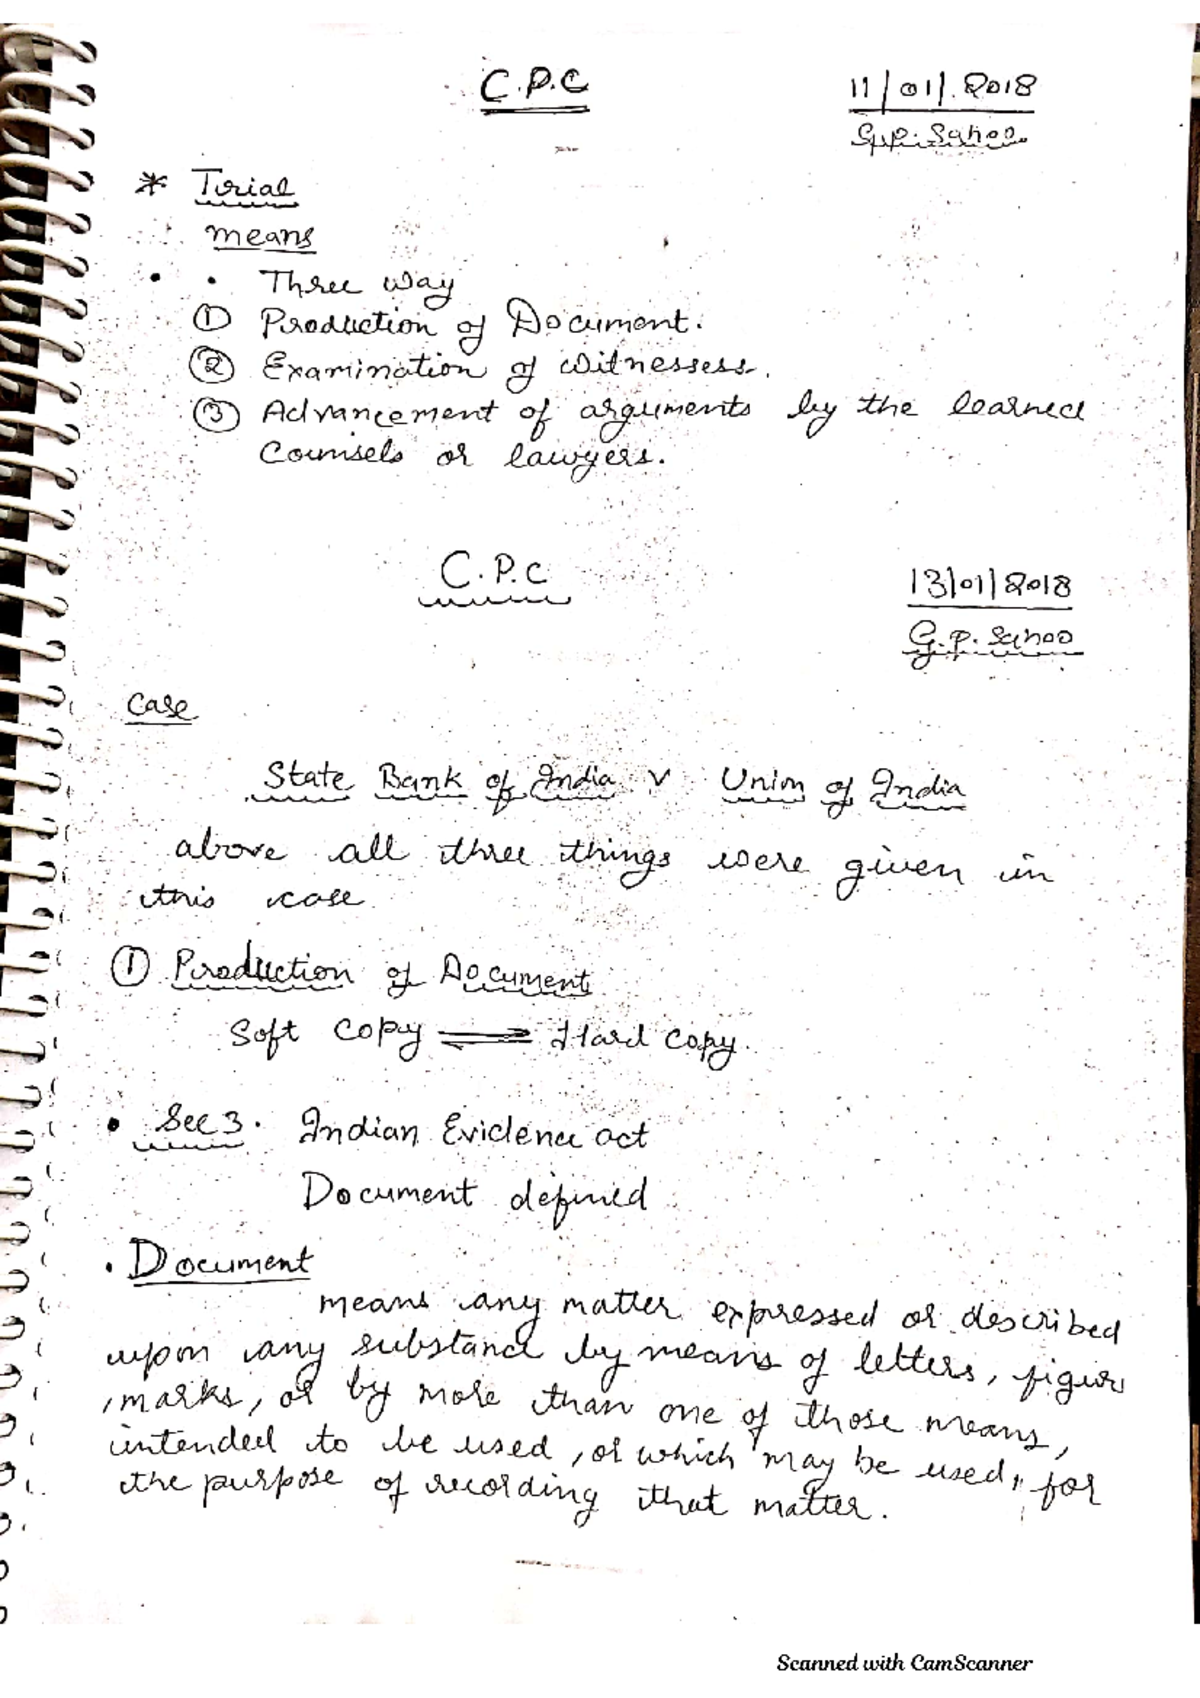 C.P.C
11/01/.2018
G.P. Sahoo.
* Trial
means
• • Three way
① Production of Document.
② Examination of witnessess.
③ Advancement of arguments by the learned
Counsels or lawyers.
C.P.C
13/01/2018
G.P. Sahoo
Case
State Bank of India v Union of India
above all three things were given in
this case
① Production of Document
Soft Copy ⇌ Hard Copy.
• Sec 3. Indian Evidence act
Document defined
• Document
means any matter expressed or described
upon any substance by means of letters, figur
, marks, or by more than one of those means,
intended to be used, or which may be used, for
the purpose of recording that matter.
Scanned with CamScanner